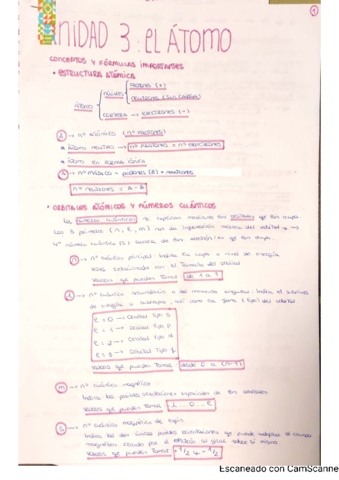 1
UNIDAD 3: EL ÁTOMO
CONCEPTOS Y FÓRMULAS IMPORTANTES
• ESTRUCTURA ATÓMICA
PROTONES (+)
NÚCLEO
NEUTRONES (sin carga)
ÁTOMO
CORTEZA → ELECTRONES (-)
→ nº atómico (nº protones)
Átomo neutro → nº protones = nº electrones
Átomo en forma iónica
A → nº másico = protones (Z) + neutrones
nº neutrones = A - Z
• ORBITALES ATÓMICOS Y NÚMEROS CUÁNTICOS
Los números cuánticos
Los 3 primeros (n, l, m) nos dan información acerca del orbital
4º número cuántico (s)
n → nº cuántico principal. Indica la capa o nivel de energía
Está relacionado con el tamaño del orbital
Valores que pueden tomar: de 1 a 7
l → nº cuántico secundario o del momento angular. Indica el subnivel
de energía o subcapa, así como la forma (tipo) del orbital
l = 0 → Orbital tipo s
l = 1 → Orbital tipo p
l = 2 → Orbital tipo d
l = 3 → Orbital tipo f
Valores que pueden tomar: desde 0 a (n-1)
m → nº cuántico magnético
Indica las posibles orientaciones espaciales de los orbitales
Valores que pueden tomar: -l .. 0 .. l
s → nº cuántico magnético de espín
Indica las dos únicas posibles orientaciones que puede adoptar el campo
magnético creado por el electrón al girar sobre sí mismo
Valores que pueden tomar: +1/2 y -1/2
Escaneado con CamScanner